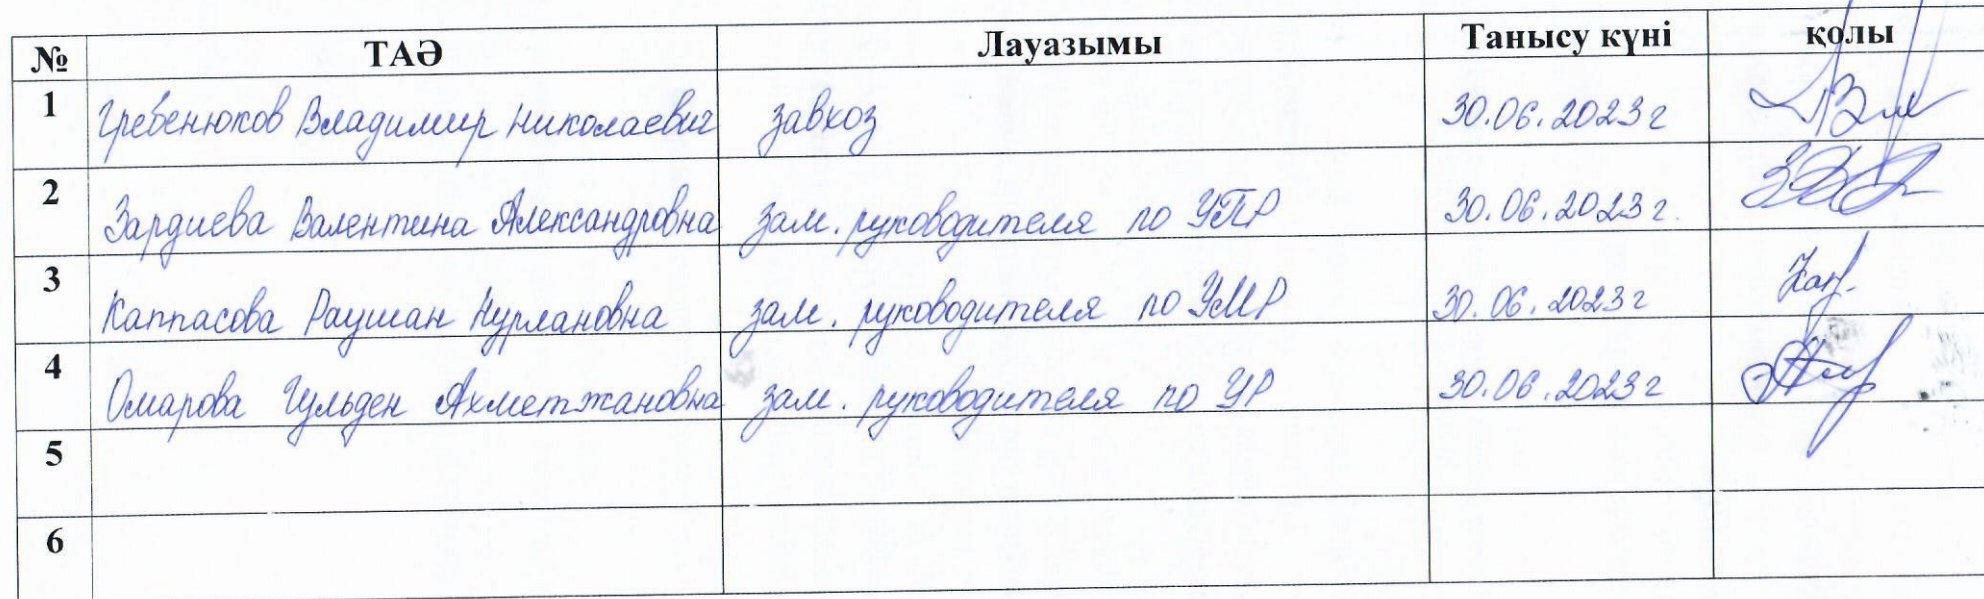 № ТАӘ Лауазымы Танысу күні қолы
1 Гребенюков Владимир Николаевич завхоз 30.06.2023 г
2 Зардиева Валентина Александровна зам. руководителя по УПР 30.06.2023 г.
3 Каппасова Раушан Нурлановна зам. руководителя по УМР 30.06.2023 г
4 Омарова Гульден Ахметжановна зам. руководителя по УР 30.06.2023 г
5
6